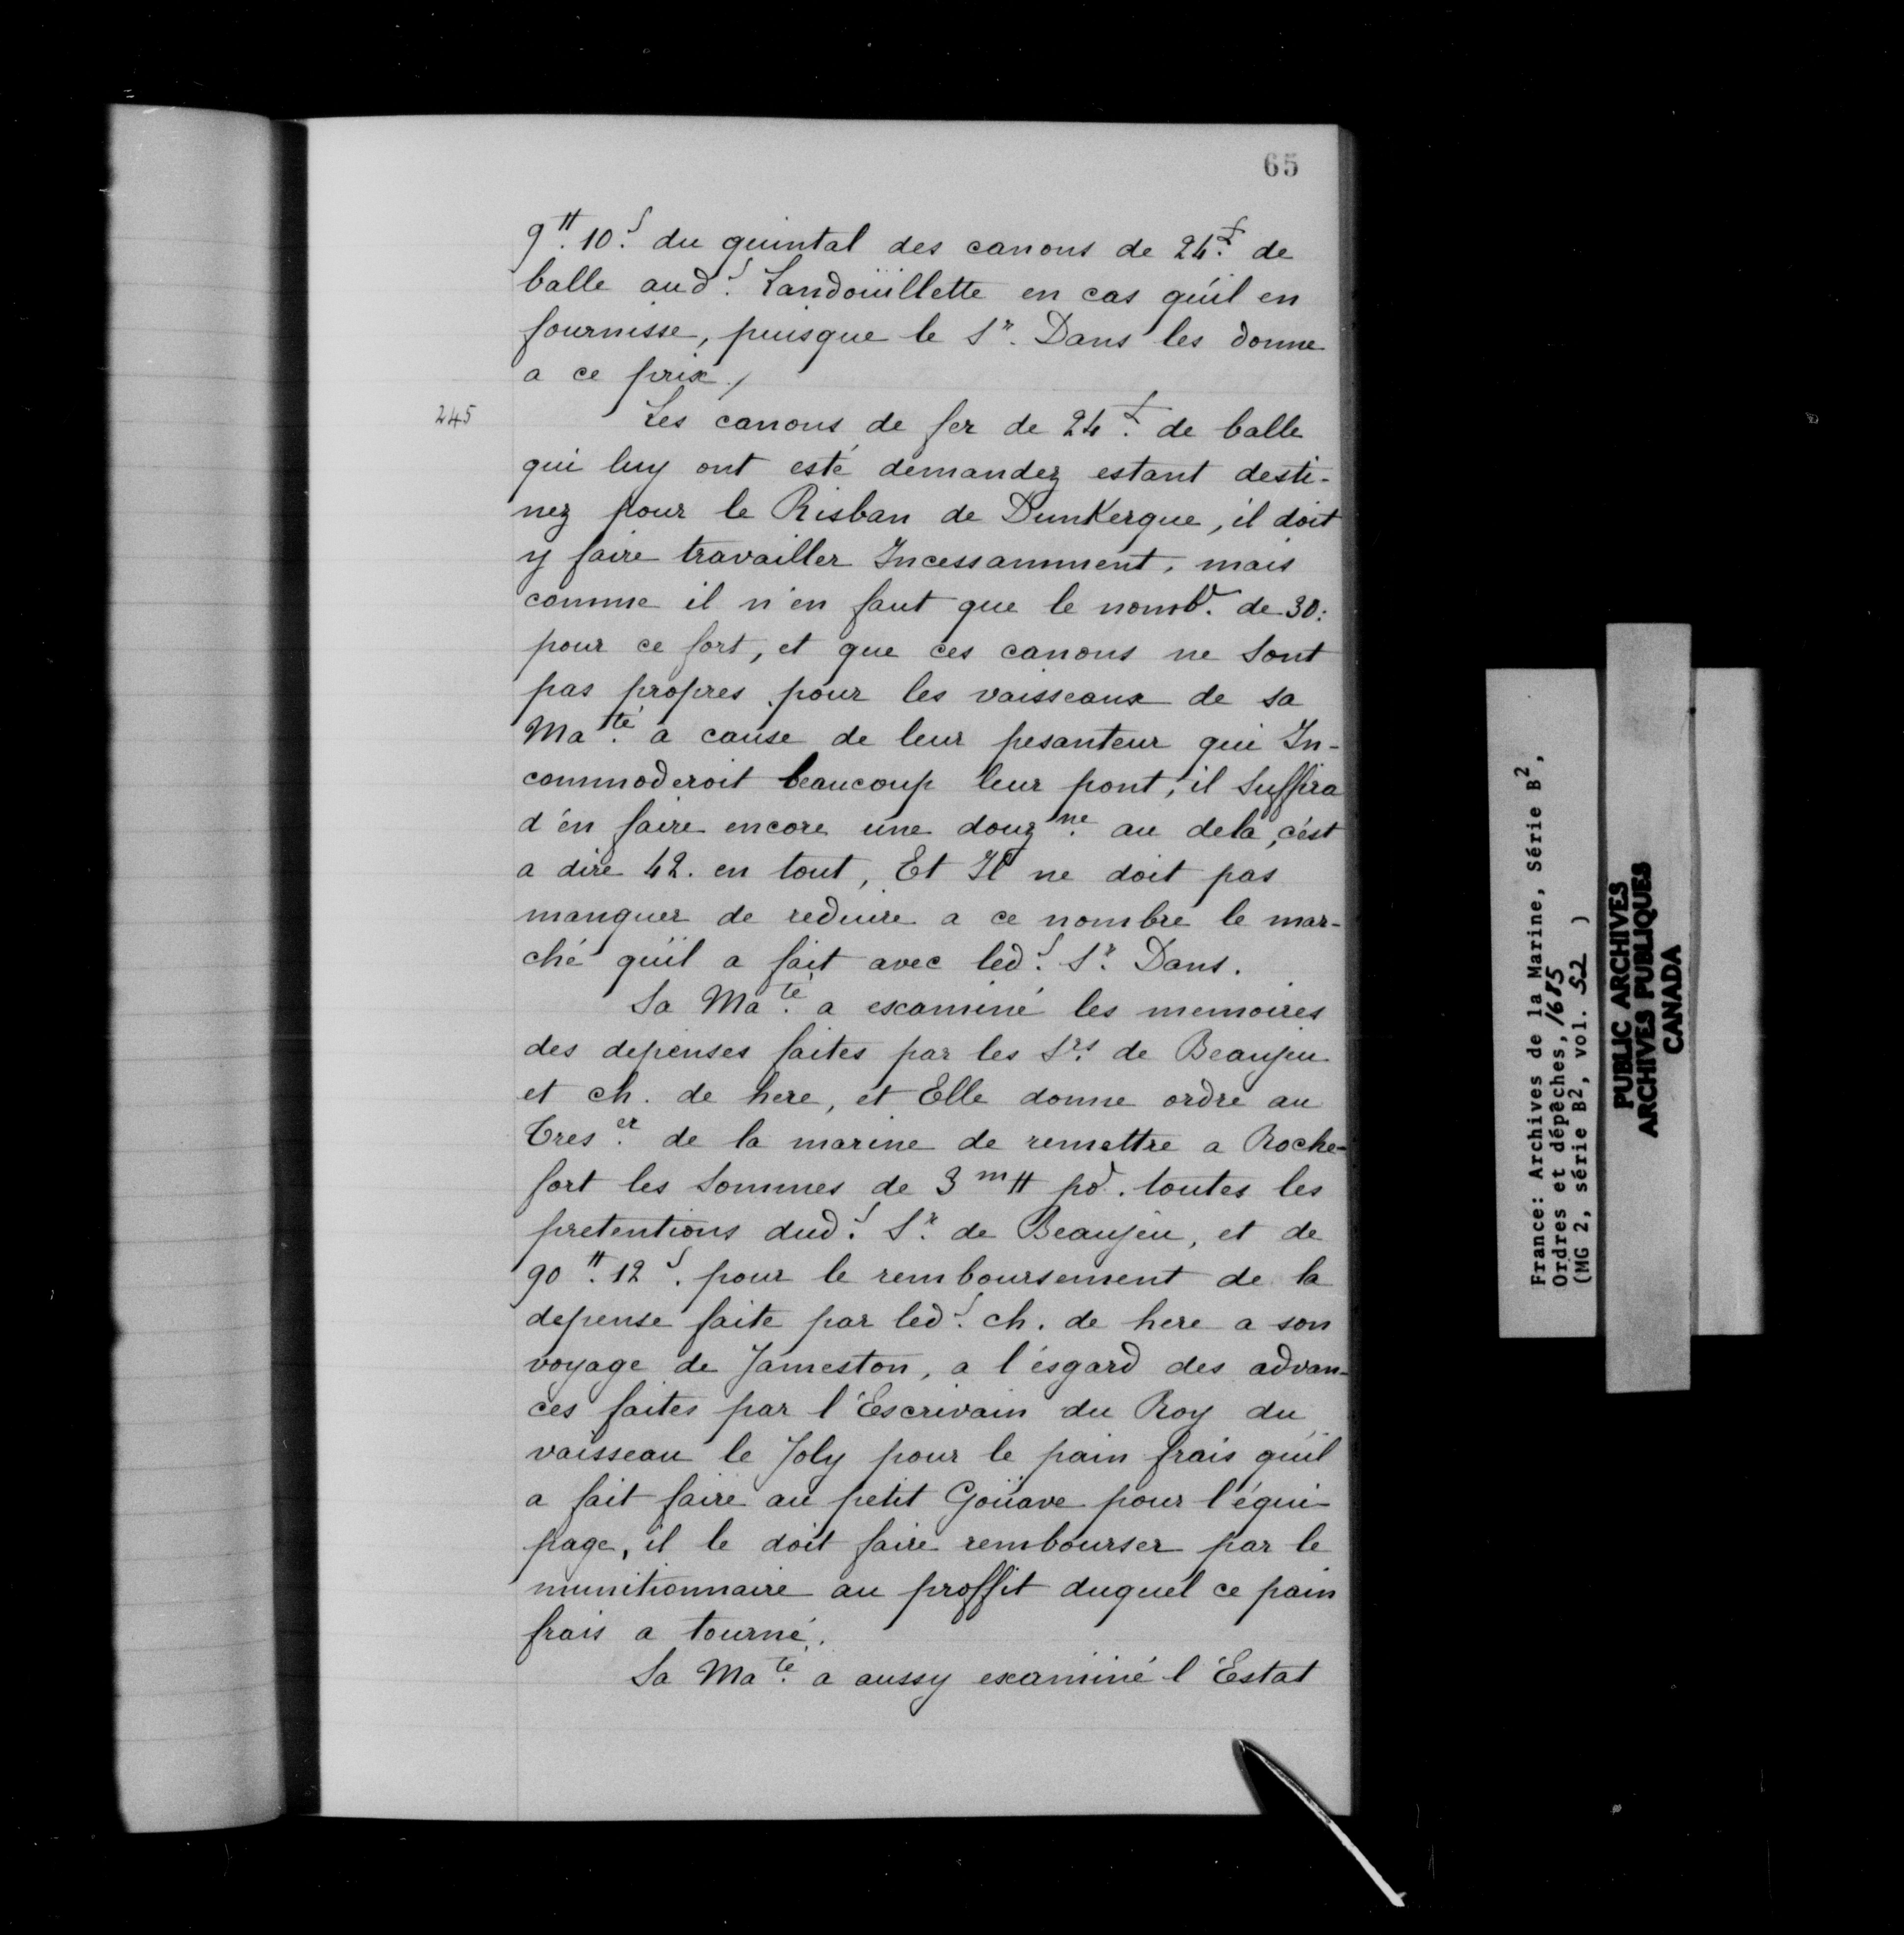 65
9ᵗᵗ. 10ˢ. du quintal des canons de 24ᶠ. de
balle audˢ. Landoüillette en cas qu'il en
fournisse, puisque le Sʳ. Dans les donne
a ce prix./
245
Les canons de fer de 24ᶠ. de balle
qui luy ont esté demandez estant desti-
nez pour le Risban de DunKerque, il doit
y faire travailler Incessamment, mais
comme il n'en faut que le nombʳ. de 30:
pour ce fort, et que ces canons ne sont
pas propres pour les vaisseaux de sa
Maᵗᵗᵉ́. a cause de leur pesanteur qui In-
commoderoit beaucoup leur pont, il suffira
d'en faire encore une douzⁿᵉ. au dela, c'est
a dire 42. en tout, Et Il ne doit pas
manquer de reduire a ce nombre le mar-
ché qu'il a fait avec ledˢ. Sʳ. Dans.
Sa Maᵗᵉ́. a examiné les memoires
des depenses faites par les Sʳˢ. de Beaujeu
et ch. de here, et Elle donne ordre au
Tresᵉʳ. de la marine de remettre a Roche-
fort les sommes de 3ᵐ tt pʳ. toutes les
pretentions dudˢ. Sʳ. de Beaujeu, et de
90ᵗᵗ. 12ˢ. pour le remboursement de la
depense faite par ledˢ. ch. de here a son
voyage de Jameston, a l'esgard des advan-
ces faites par l'Escrivain du Roy du
vaisseau le Joly pour le pain frais qu'il
a fait faire au petit Goüave pour l'équi-
page, il le doit faire rembourser par le
munitionnaire au proffit duquel ce pain
frais a tourné.
Sa Maᵗᵉ́. a aussy examiné l'Estat
France: Archives de la Marine, Série B²,
Ordres et dépêches, 1685
(MG 2, série B², vol. 52 )
PUBLIC ARCHIVES
ARCHIVES PUBLIQUES
CANADA